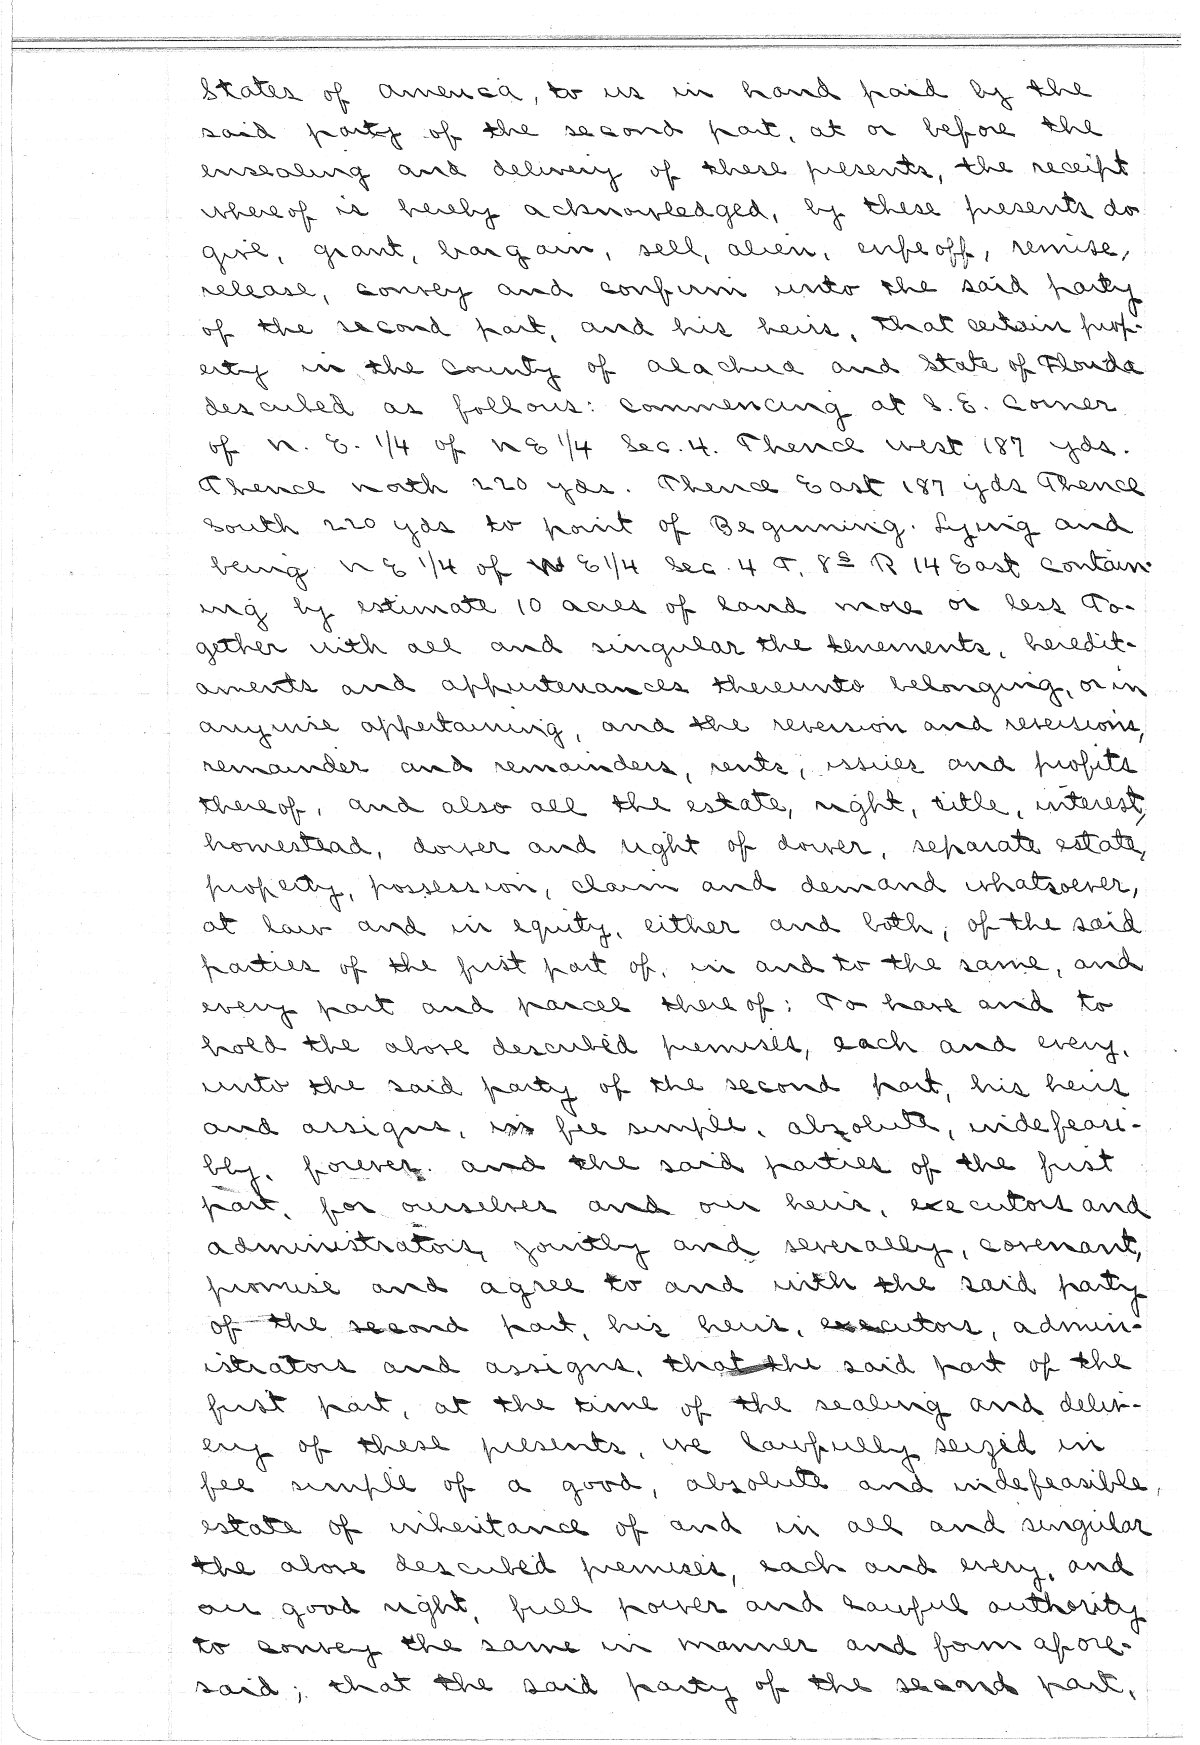 States of America, to us in hand paid by the
said party of the second part, at or before the
ensealing and delivery of these presents, the receipt
whereof is hereby acknowledged, by these presents do
give, grant, bargain, sell, alien, enfeoff, remise,
release, convey and confirm unto the said party
of the second part, and his heirs, that certain prop-
erty in the County of Alachua and State of Florida
described as follows: Commencing at S.E. Corner
of N. E. 1/4 of NE 1/4 Sec. 4. Thence west 187 yds.
Thence north 220 yds. Thence East 187 yds Thence
South 220 yds to point of Beginning. Lying and
being NE 1/4 of NE 1/4 Sec 4 T. 8S R 14 East contain-
ing by estimate 10 acres of land more or less To-
gether with all and singular the tenements, heredit-
aments and appurtenances thereunto belonging, or in
anywise appertaining, and the reversion and reversions,
remainder and remainders, rents, issues and profits
thereof, and also all the estate, right, title, interest,
homestead, dower and right of dower, separate estate,
property, possession, claim and demand whatsoever,
at law and in equity, either and both, of the said
parties of the first part of, in and to the same, and
every part and parcel thereof: To have and to
hold the above described premises, each and every,
unto the said party of the second part, his heirs
and assigns, in fee simple, absolute, indefeasi-
bly, forever. And the said parties of the first
part, for ourselves and our heirs, executors and
administrators, jointly and severally, covenant,
promise and agree to and with the said party
of the second part, his heirs, executors, admin-
istrators and assigns, that the said part of the
first part, at the time of the sealing and deliv-
ery of these presents, we lawfully seized in
fee simple of a good, absolute and indefeasible
estate of inheritance of and in all and singular
the above described premises, each and every, and
our good right, full power and lawful authority
to convey the same in manner and form afore-
said; that the said party of the second part,